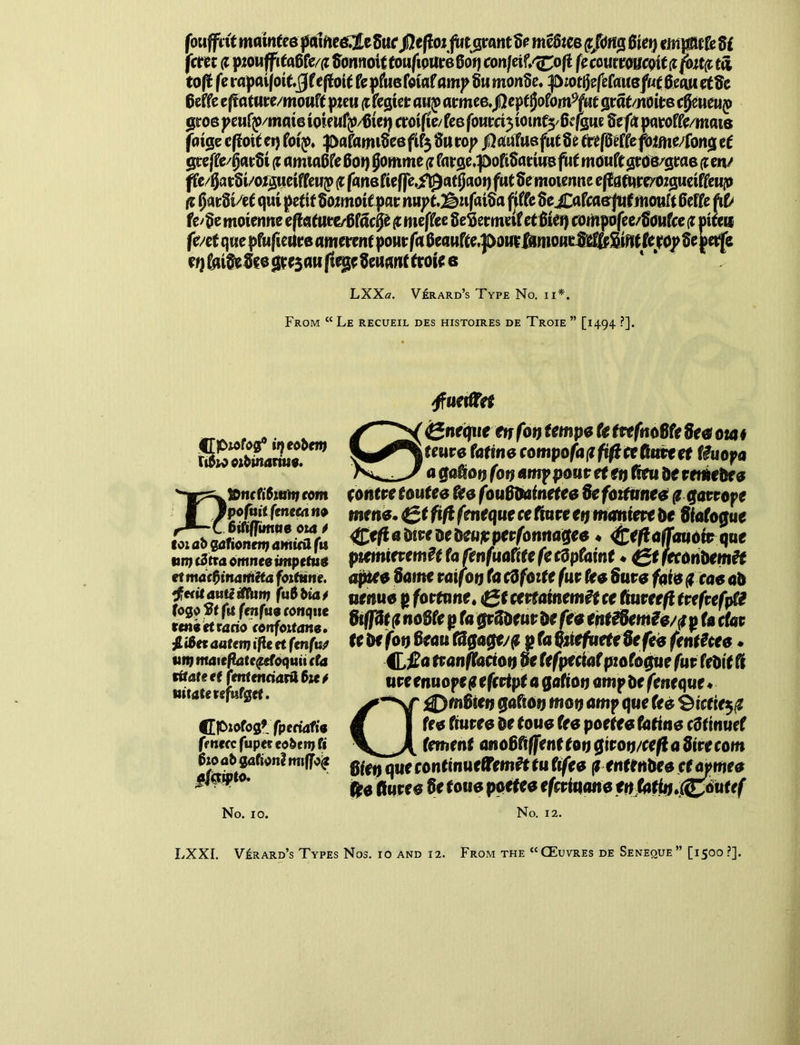 souffrit maintes paines. Le duc Nestor fut grant de mēbres & long bien emparle di
scret & prouffitable/& donnoit tousiours bon conseil. Tost se courroucoit & fort & ta
tost se rapaisoit. Il estoit le plus loial amy du monde. Protheselaus fut beau et de
belle estature/moult preu & legier aux armes. Neptholom⁹ fut grāt/noirs cheueux
gros yeulx/mais ioieulx/bien croisie/ses sourciz iointz/besgue de sa parolle/mais
saige estoit en loix. Palamides filz du roy Naulus fut de tresbelle forme/long et
gresle/hardi & amiable bon homme & large. Polidarius fut moult gros/gras & en/
fle/hardi/orgueilleux & sans liesse. Mathaon fut de moienne estature/orgueilleux
& hardi/et qui petit dormoit par nuyt. Brisaida fille de Calcas fut moult belle fil/
le/de moienne estature/blāche & meslee de vermeil et bien composee/doulce & piteu
se/et que plusieurs amerent pour sa beaulte. Pour lamour delle vint le roy de perse
en laide des grez au siege deuant troie s
LXXa. Vérard's Type No. 11*.
From “Le recueil des histoires de Troie” [1494 ?].
fueillet
¶ Prolog⁹ in eodem
libro ordinarius.
Donc librum com
posuit seneca no
bilissimus ora /
tor ad galionem amicū su
um cōtra omnes impetus
et machinamēta fortune.
Fecit autē illum sub dia/
logo vt sit sensus conque
rens et ratio confortans.
Liber autem iste et sensu/
um maiestate & eloquii cla
ritate et sententiarū bre /
uitate refulget.
¶ Prolog⁹. specialis
senece super eodem li
bro ad galionē misso &
ascripto.
Seneque en son temps le tresnoble des ora /
teurs latins composa & fist ce liure et lēuoya
a galion son amy pour et en lieu de remedes
contre toutes les soubdainetes de fortunes & garrope
mens. Et fist seneque ce liure en maniere de dialogue
Cest a dire de deux personnages. Cest assauoir que
premierement la sensualite se cōplaint. Et secondemēt
apres dame raison la cōforte sur les durs fais & cas ad
uenus p fortune. Et certainemēt ce liure est trescespl̄
diffāt & noble p la grādeur de ses entēdemēs/& p la clar
te de son beau lāgage/& p la briefuete de ses sentēces.
¶ La translacion de lespecial prologue sur ledit li
ure enuoye & escript a galion amy de seneque.
Combien galion mon amy que les dictiez &
les liures de tous les poetes latins cōtinuel
lement anoblissent ton giron/cest a dire com
bien que continuellemēt tu lises & entendes et aymes
les liures de tous poetes escriuans en latin. Toutef
No. 10.
No. 12.
LXXI. Vérard's Types Nos. 10 and 12. From the “Œuvres de Seneque” [1500 ?].